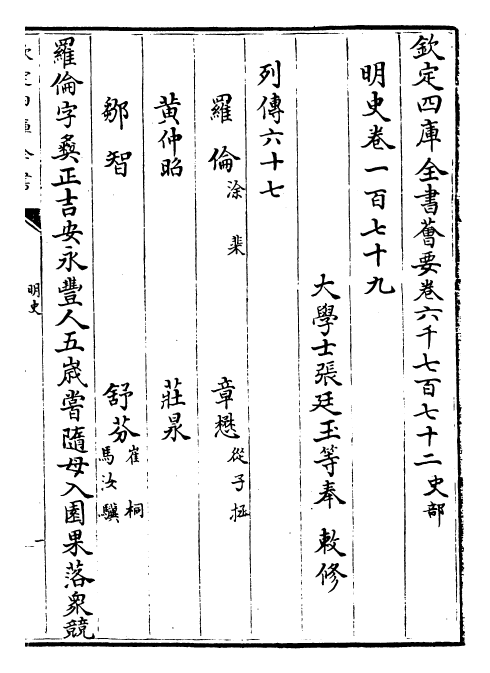 欽定四庫全書薈要卷六千七百七十二 史部
明史卷一百七十九
大學士張廷玉等奉 敕修
列傳六十七
羅倫 涂棐 章懋 從子拯
黃仲昭 莊㫤
鄒智 舒芬 崔桐 馬汝驥
羅倫字彝正吉安永豐人五歲嘗隨母入園果落衆競
欽定四庫全書
明史
一